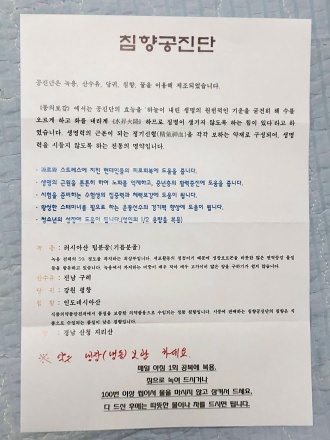 침향공진단
공진단은 녹용, 산수유, 당귀, 침향, 꿀을 이용해 제조되었습니다.
《동의보감》에서는 공진단의 효능을 '하늘이 내린 생명의 원천적인 기운을 굳건히 해 수를
오르게 하고 화를 내리게 (水昇火降) 하므로 질병이 생기지 않도록 하는 힘이 있다'라고 하
였습니다. 생명력의 근본이 되는 정기신혈(精氣神血)을 각각 보하는 약재로 구성되어, 생명
력을 시들지 않도록 하는 전통의 명약입니다.
- 과로와 스트레스에 지친 현대인들의 피로회복에 도움을 줍니다.
- 생명의 근원을 튼튼히 하여 노화를 억제하고, 중년층의 활력증진에 도움이 됩니다.
- 시험을 준비하는 수험생의 집중력과 체력보강에 도움이 됩니다.
- 왕성한 스태미너를 필요로 하는 운동선수의 경기력 향상에 도움이 됩니다.
- 청소년의 성장에 도움이 됩니다.(성인의 1/2 용량을 복용)
녹 용 : 러시아산 팁분골(기름분골)
산수유 : 전남 구례
당 귀 : 강원 평창
침 향 : 인도네시아산
꿀 : 경남 산청 지리산
냉장(냉동)보관 하세요.
매일 아침 1회 공복에 복용,
침으로 녹여 드시거나
100번 이상 씹어서 물을 마시지 않고 삼켜서 드세요.
다 드신 후에는 따뜻한 물이나 차를 드시면 됩니다.